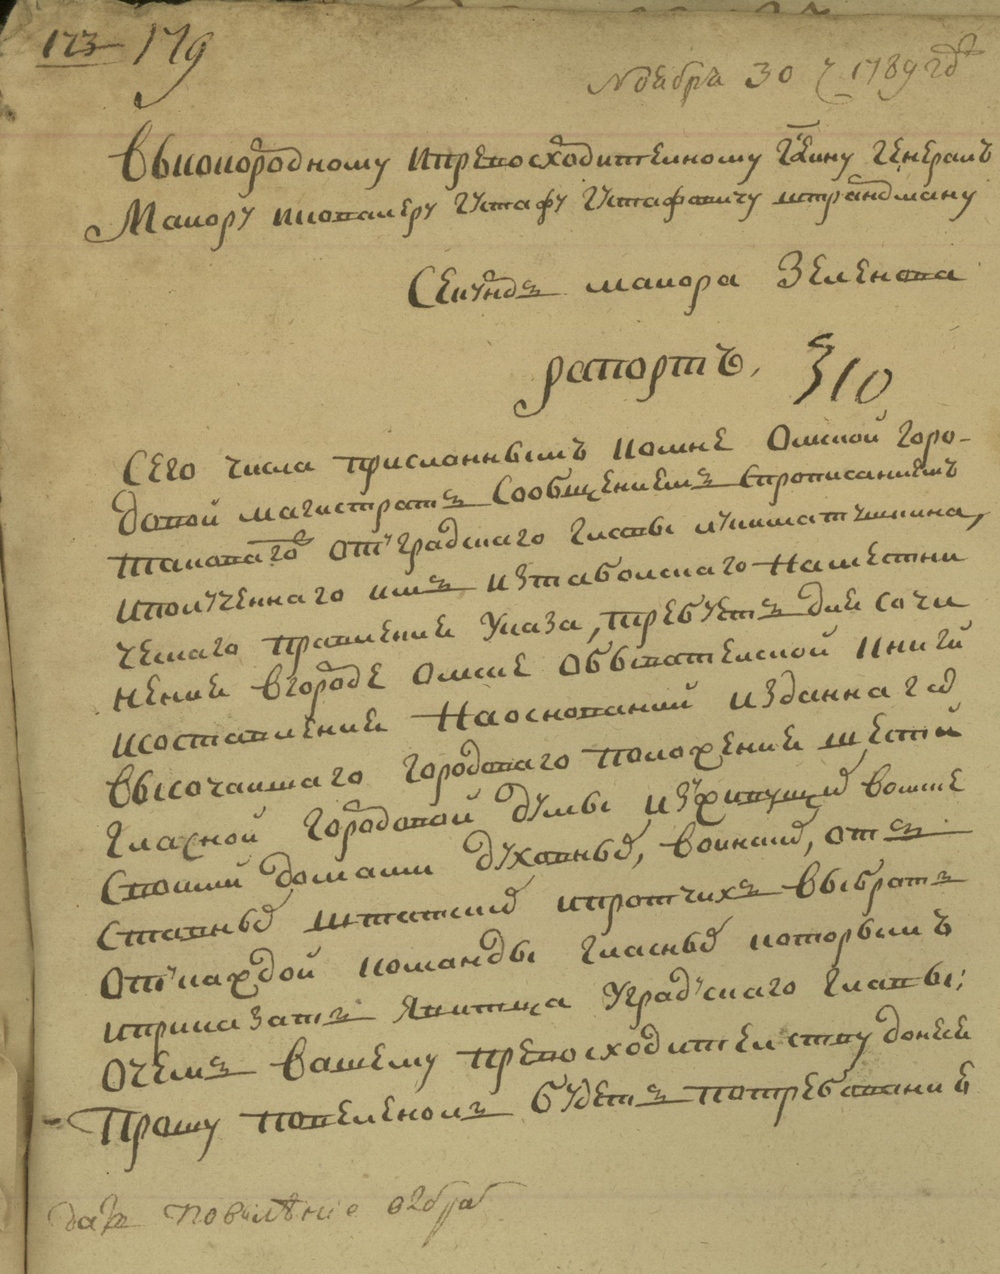 173 179
Ноебря 30 ч 1789 год
Высокородному и превосходителному Гдину Генералъ
Маиору икавалеру Густафу Густафовичу штрандману
Секундъ маиора Зеленова
рапортъ. 310
Сего числа присланнымъ комне Омской горо-
довой магистратъ Сообщениемъ Спрописаниемъ
таковаго от градскаго главы
иполученнаго имъ изтаболскаго Наместни
ческаго правление Указа, требуетъ дле сочи
нение вгороде Омске Обывателской книги
исоставление Наоснований изданнаго
высочаишаго городоваго положение шести
гласной городовой думы изживущий вомске
Своими домами духовные, воинские, отъ
ставные штатские ипротчихъ выбратъ
От каждой команды гласные которымъ
иприказатъ Явитца Уградскаго главы;
Очемъ вашему превосходителству донесе
Прошу повеленомъ будетъ потребавание
дать повелѣние